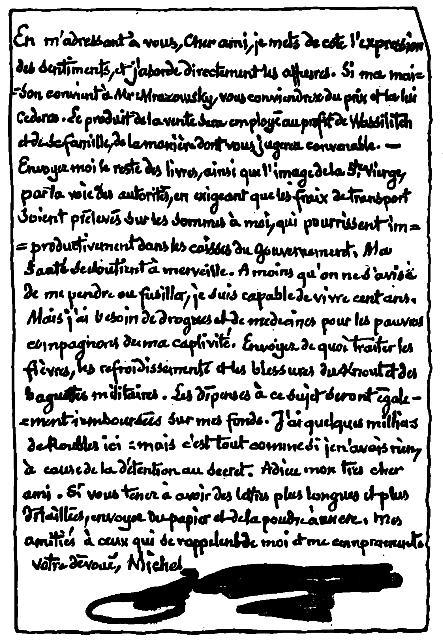 En m'adressant à vous, Cher ami, je mets de coté l'expression
des sentiments, et j'aborde directement les affaires. Si ma mai=
=son convient à Mr Mrazowsky, vous conviendrez du prix et la lui
Cederez. Le produit de la vente sera employé au profit de Wassilitch
et de sa famille, de la manière dont vous jugerez convenable. —
Envoyez moi le reste des livres, ainsi que l'image de la Ste Vierge,
par la voie des autorités, en exigeant que les fraix de transport
soient prélevés sur les sommes à moi, qui pourrissent im=
=productivement dans les caisses du Gouvernement. Ma
Santé se soutient à merveille. A moins qu'on ne s'avise
de me pendre ou fusiller, je suis capable de vivre cent ans.
Mais j'ai besoin de drogues et de medecines pour les pauvres
compagnons de ma captivité. Envoyez de quoi traiter les
fièvres, les refroidissements et les blessures du Knout et des
baguettes militaires. Les dépenses à ce sujet seront égale=
=ment remboursées sur mes fonds. J'ai quelques milliers
de Roubles ici = mais c'est tout comme si je n'avois rien,
à cause de la détention au secret. Adieu mon très cher
ami. Si vous tenez à avoir des lettres plus longues et plus
détaillées, envoyez du papier et de la poudre à encre. Mes
amitiés à ceux qui se rappelent de moi et me comprennent
votre dévoué, Michel